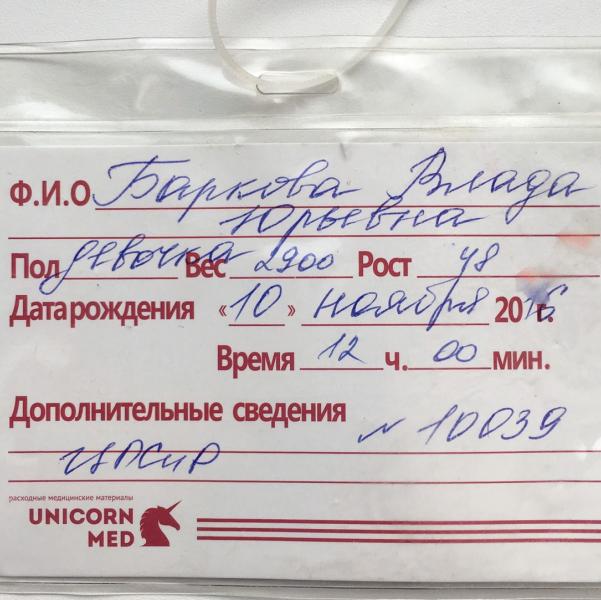 Ф.И.О Баркова Влада
Юрьевна
Пол девочка Вес 2900 Рост 48
Дата рождения «10» ноября 2016 г.
Время 12 ч. 00 мин.
Дополнительные сведения
N 10039
ЦПСиР
расходные медицинские материалы
UNICORN
MED